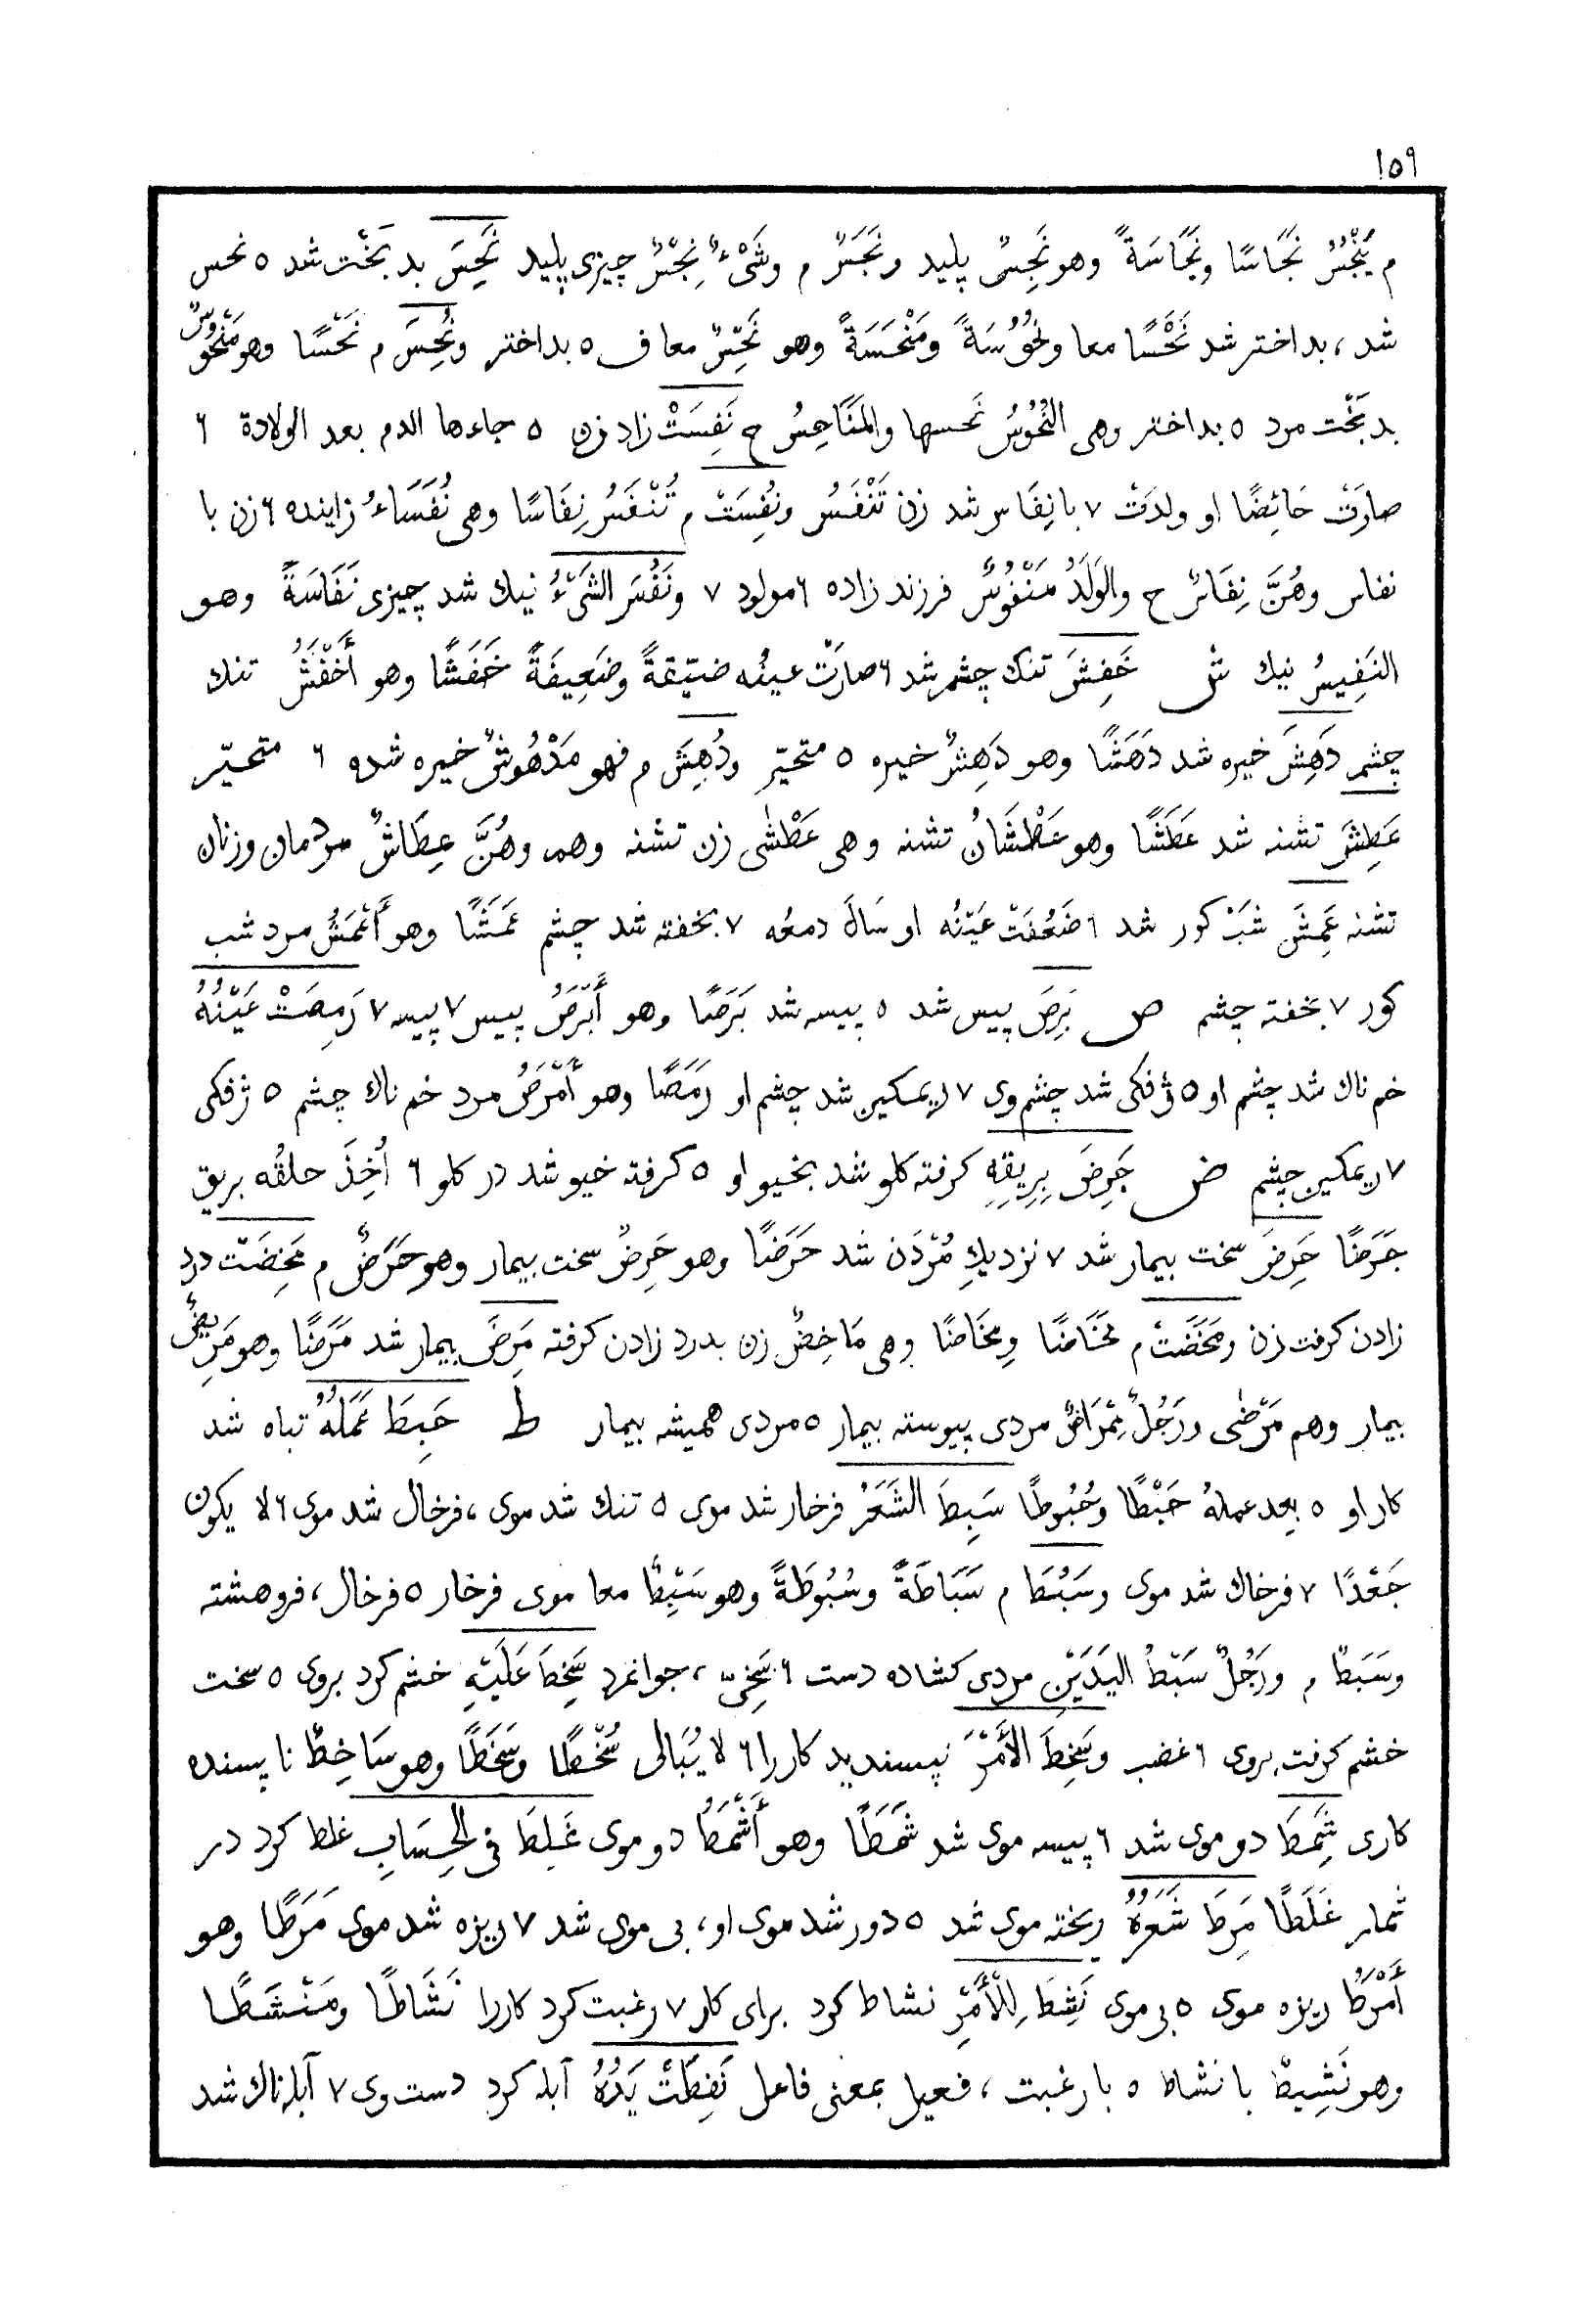 ١٥٩
م يَنْجُسُ نَجَاسًا ونَجَاسَةً وهو نَجِسٌ پليد ونَجَسٌ م وشَىْءٌ نِجْسٌ چيزى پليد نَحِسَ بد بَخْت شد ٥ نحس
شد، بداختر شد نَحْسًا معا ونُحُوُسَةً ومَنْحَسَةً وهو نَحِسٌ معا ف ٥ بداختر ونُحِسَ م نَحْسًا وهو مَنْحُوْسٌ
بدبَخْت مرد ٥ بداختر وهى النُحُوْسُ نَحسها والمَنَاحِسُ ج نَفِسَتْ زاد زن ٥ جاءها الدم بعد الولادة ٦
صارَتْ حَائِضًا او ولدَتْ ٧ بانِفَاس شد زن تَنْفَسُ ونُفِسَتْ م تُنْفَسُ نِفَاسًا وهى نُفَسَاءُ زاينده ٦ زن با
نفاس وهُنَّ نِفَاسٌ ج والوَلَدُ مَنْفُوْسٌ فرزند زاده ٦ مولود ٧ ونَفُسَ الشَىْءُ نيك شد چيزى نَفَاسَةً وهو
النَفِيسُ نيك ش خَفِشَ تنك چشم شد ٦ صارَتْ عينُه ضيّقةً وضَعِيفَةً خَفَشًا وهو أَخْفَشُ تنك
چشم دَهِشَ خيره شد دَهَشًا وهو دَهِشٌ خيره ٥ متحيّرِ ودُهِشَ م فهو مَدْهُوشٌ خيره شده ٦ متحيّر
عَطِشَ تشنه شد عَطَشًا وهو عَطْشَانُ تشنه وهى عَطْشٰى زن تشنه وهم وهُنَّ عِطَاشٌ مردمان وزنان
تشنه عَمِشَ شَبْ كور شد ٦ ضَعُفَتْ عَيْنُه او سَالَ دمعُه ٧ بخفته شد چشم عَمَشًا وهو أَعْمَشُ مرد شب
كور ٧ بخفته چشم ص بَرِصَ پيس شد ٥ پيسه شد بَرَصًا وهو أَبْرَصُ پيس ٧ پيسه ٧ رَمِصَتْ عَيْنُهُ
خم ناك شد چشم او ٥ ژفكى شد چشم وى ٧ ريمكين شد چشم او رَمَصًا وهو أَمْرَصُ مرد خم ناك چشم ٥ ژفكى
٧ ريمكين چشم ض جَرِضَ بِرِيقِهِ كرفته كلو شد بخيو او ٥ كرفته خيو شد در كلو ٦ أُخِذَ حلقُه بريق
جَرَضًا حَرِضَ سخت بيمار شد ٧ نزديكِ مُرْدَن شد حَرَضًا وهو حَرِضٌ سخت بيمار وهو حَرَضٌ م مَخِضَتْ درد
زادن كرفت زن ومَخَضَتْ م مَخَاضًا ومِخَاضًا وهى مَاخِضٌ زن بدرد زادن كرفته مَرِضَ بيمار شد مَرَضًا وهو مَرِيضٌ
بيمار وهم مَرْضٰى ورَجُلٌ مِمْرَاضٌ مردى پيوسته بيمار ٥ مردى هميشه بيمار ط حَبِطَ عَمَلُهُ تباه شد
كار او ٥ بعد عملهُ حَبْطًا وحُبُوطًا سَبِطَ الشَعَرُ فرخار شد موى ٥ تنك شد موى، فرخال شد موى ٦ لا يكون
جَعْدًا ٧ فرخاك شد موى وسَبُطَ م سَبَاطَةً وسُبُوطَةً وهو سَبْطٌ معا موى فرخار ٥ فرخال، فروهشته
وسَبَطٌ م ورَجُلٌ سَبْطُ اليَدَيْنِ مردى كشاده دست ٦ سَخِىّ، جوانمرد سَخِطَ عَلَيْهِ خشم كرد بروى ٥ سخت
خشم كرفت بروى ٦ غضب وسَخِطَ الأَمْرَ نپسنديد كاررا ٦ لا يُبَالى سُخْطًا وسَخَطًا وهو سَاخِطٌ ناپسنده
كارى شَمِطَ دو موى شد ٦ پيسه موى شد شَمَطًا وهو أَشْمَطُ دو موى غَلِطَ فى الحِسَابِ غلط كرد در
شمار غَلَطًا مَرِطَ شَعَرُهُ ريخته موى شد ٥ دور شد موى او، بى موى شد ٧ ريزه شد موى مَرَطًا وهو
أَمْرَطُ ريزه موى ٥ بى موى نَشِطَ لِلأَمْرِ نشاط كرد براى كار ٧ رغبت كرد كاررا نَشَاطًا ومَنْشَطًا
وهو نَشِيطٌ با نشاط ٥ با رغبت، فعيل بمعنى فاعل نَفِطَتْ يَدُهُ آبله كرد دست وى ٧ آبله ناك شد